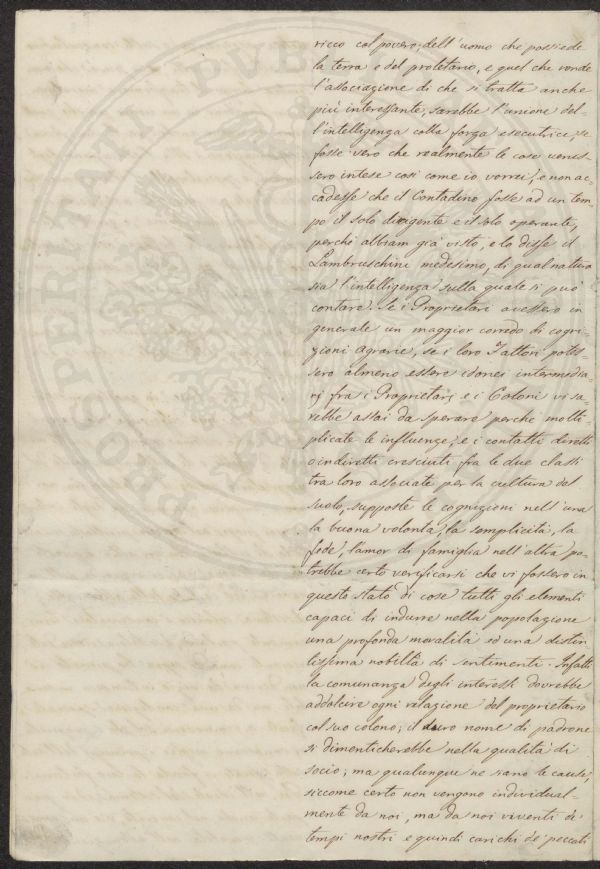 ricco col povero, dell'uomo che possiede
la terra e del proletario, e quel che rende
l'associazione di che si tratta anche
più interessante, sarebbe l'unione del-
l'intelligenza colla forza esecutrice, se
fosse vero che realmente le cose venis-
sero intese così come io vorrei, e non ac-
cadesse che il Contadino fosse ad un tem-
po il solo dirigente e il solo operante,
perché abbiam già visto, e lo disse il
Lambruschini medesimo, di qual natura
sia l'intelligenza sulla quale si può
contare. Se i Proprietari avessero in
generale un maggior corredo di cogni-
zioni agrarie, se i loro Fattori potes-
sero almeno essere idonei intermedia-
rj fra i Proprietarj e i Coloni vi sa-
rebbe assai da sperare perché molti-
plicate le influenze, e i contatti diretti
o indiretti cresciuti fra le due classi
tra loro associate per la cultura del
suolo, supposte le cognizioni nell'una
la buona volontà, la semplicità, la
fede, l'amor di famiglia nell'altra po-
trebbe certo verificarsi che vi fossero in
questo stato di cose tutti gli elementi
capaci di indurre nella popolazione
una profonda moralità ed una distin
tissima nobiltà di sentimenti. Infatti
la comunanza degli interessi dovrebbe
addolcire ogni relazione del proprietario
col suo colono; il duro nome di padrone
si dimenticherebbe nella qualità di
socio; ma qualunque ne siano le cause,
siccome certo non vengono individual-
mente da noi, ma da noi viventi a'
tempi nostri e quindi carichi de' peccati
PROSPERITAT PVB